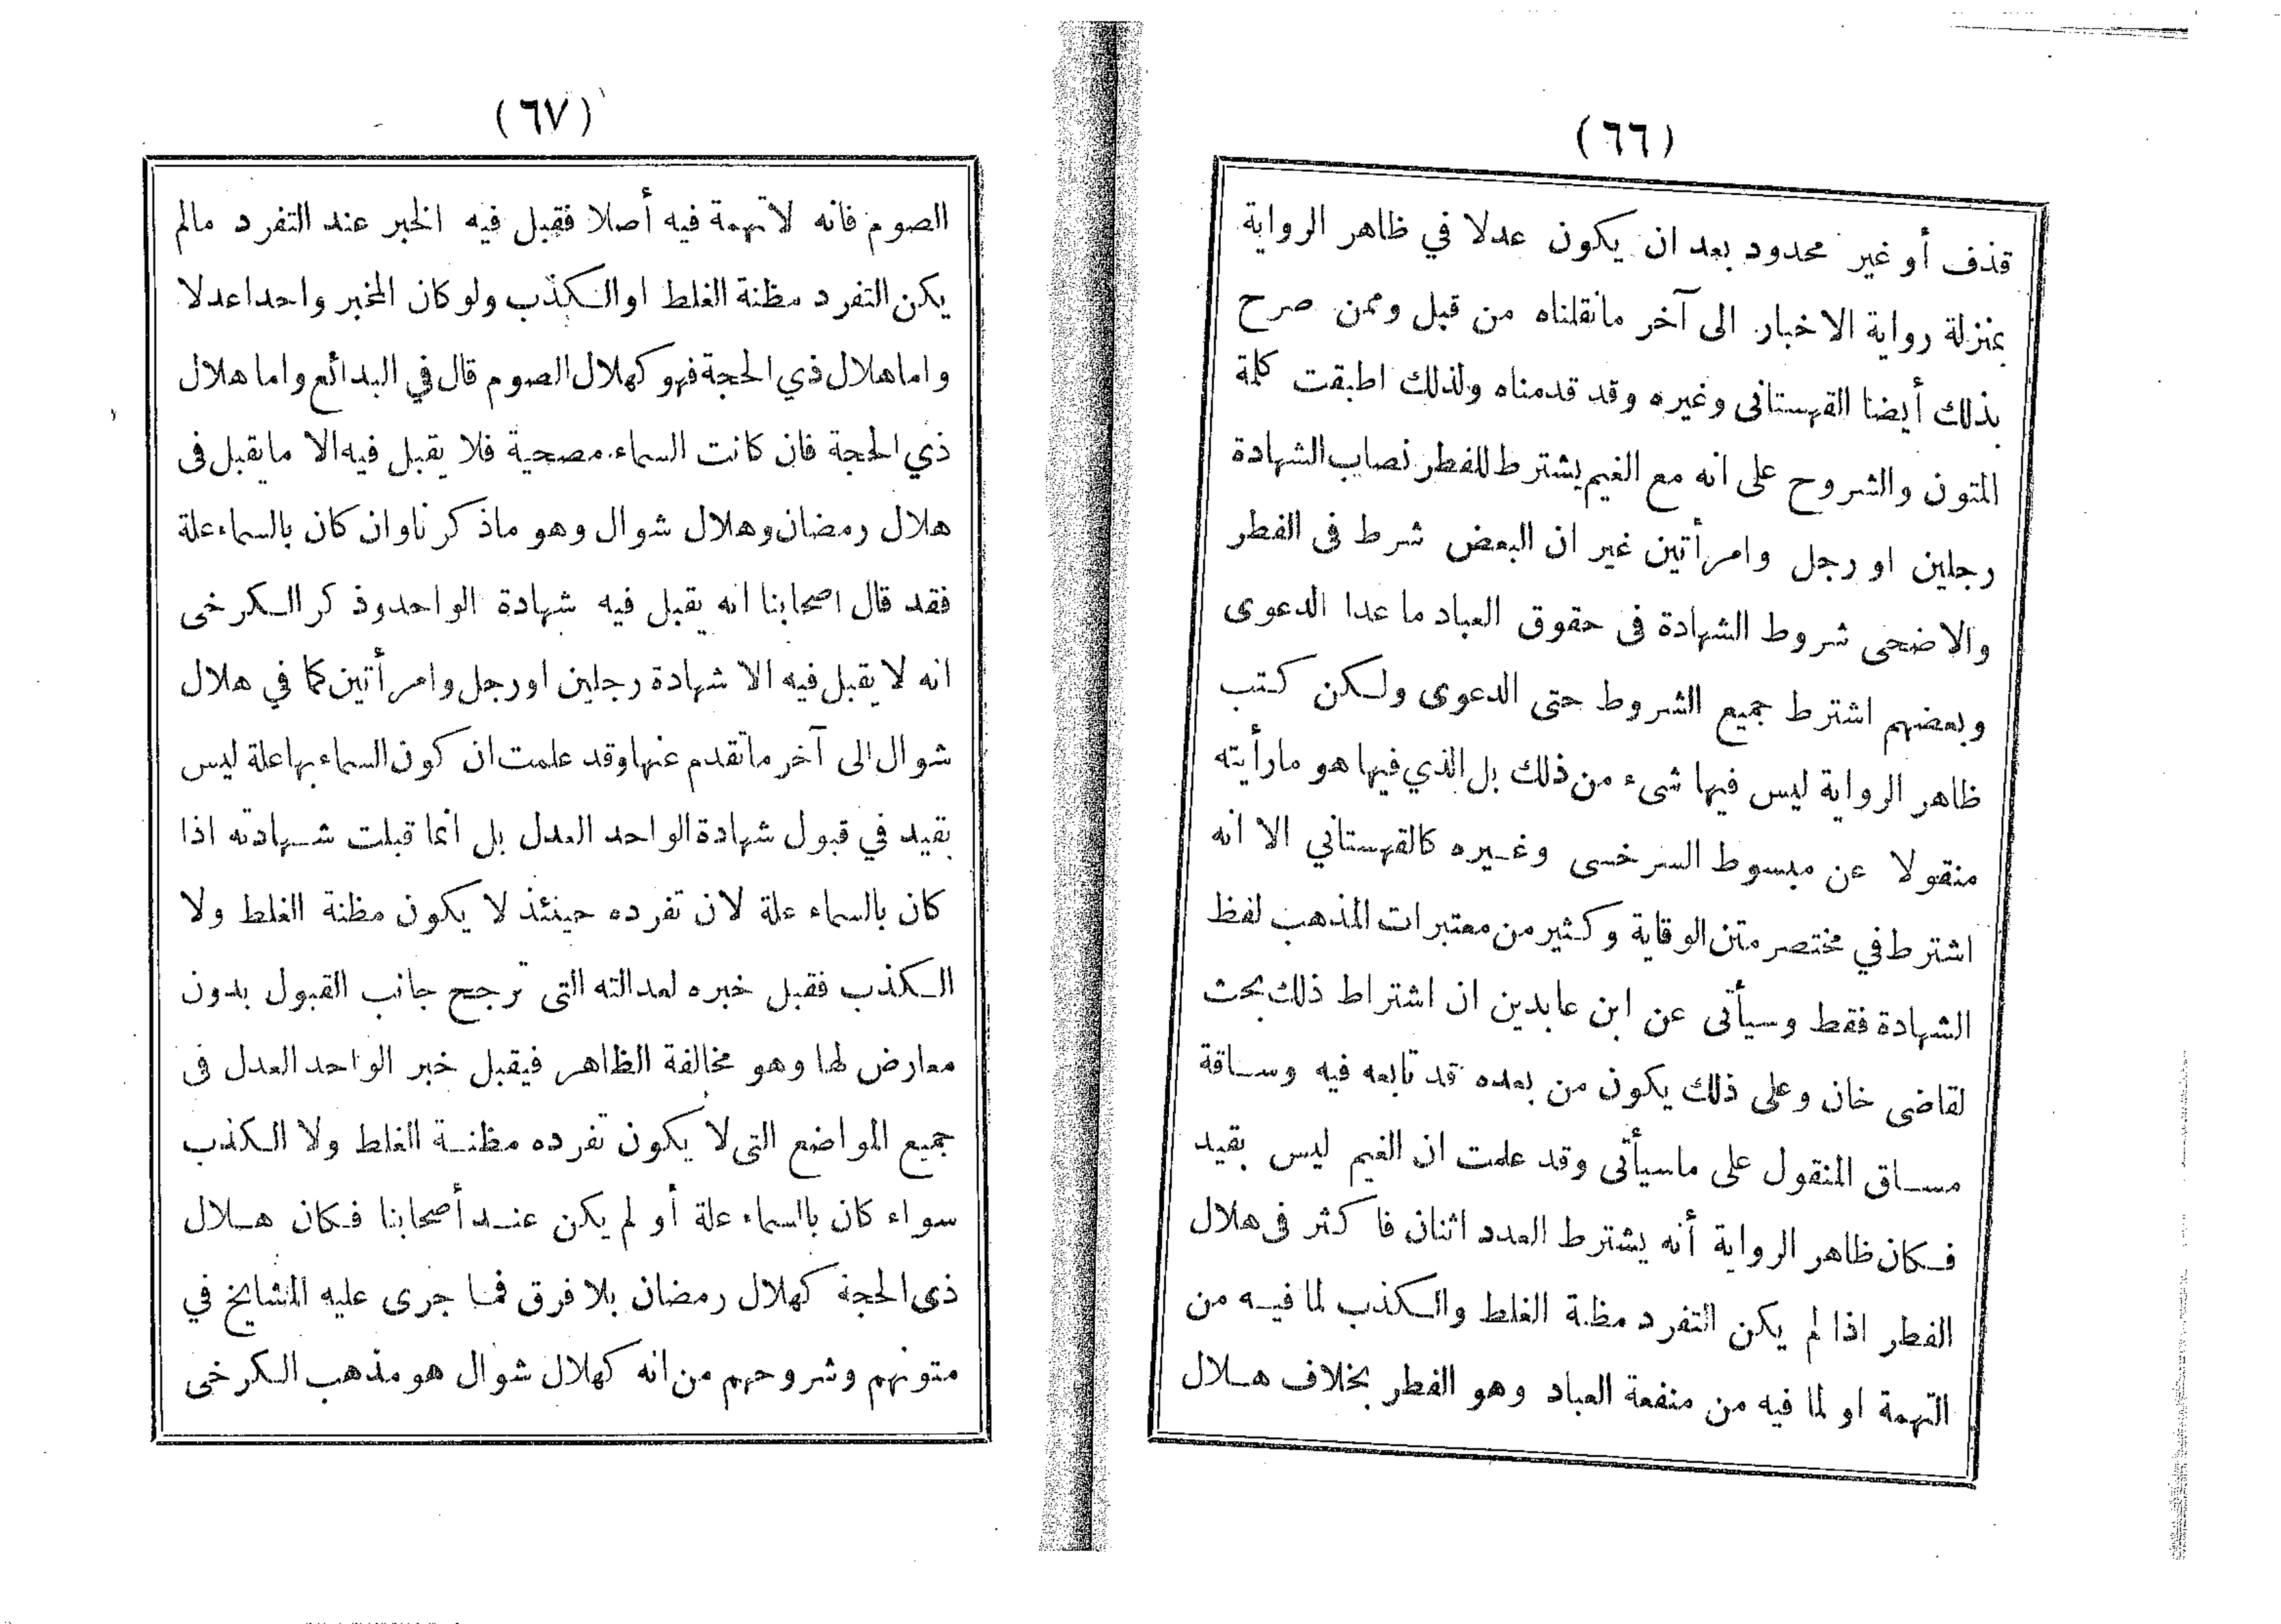 (٦٦)
قذف أو غير محدود بعد ان يكون عدلا في ظاهر الرواية
بمنزلة رواية الاخبار الى آخر مانقلناه من قبل وممن صرح
بذلك أيضا القهستانى وغيره وقد قدمناه ولذلك اطبقت كلمة
المتون والشروح على انه مع الغيم يشترط للفطر نصاب الشهادة
رجلين او رجل وامرأتين غير ان البعض شرط فى الفطر
والاضحى شروط الشهادة فى حقوق العباد ما عدا الدعوى
وبعضهم اشترط جميع الشروط حتى الدعوى ولكن كتب
ظاهر الرواية ليس فيها شىء من ذلك بل الذي فيها هو مارأيته
منقولا عن مبسوط السرخسى وغيره كالقهستاني الا انه
اشترط في مختصر متن الوقاية وكثير من معتبرات المذهب لفظ
الشهادة فقط وسيأتى عن ابن عابدين ان اشتراط ذلك بحث
لقاضى خان وعلى ذلك يكون من بعده قد تابعه فيه وساقة
مساق المنقول على ماسيأتى وقد علمت ان الغيم ليس بقيد
فكان ظاهر الرواية أنه يشترط العدد اثنان فاكثر فى هلال
الفطر اذا لم يكن التفرد مظنة الغلط والكذب لما فيه من
التهمة او لما فيه من منفعة العباد وهو الفطر بخلاف هلال
(٦٧)
الصوم فانه لاتهمة فيه أصلا فقبل فيه الخبر عند التفرد مالم
يكن التفرد مظنة الغلط او الكذب ولو كان المخبر واحدا عدلا
واما هلال ذي الحجة فهو كهلال الصوم قال في البدائع واما هلال
ذي الحجة فان كانت السماء مصحية فلا يقبل فيه الا مايقبل فى
هلال رمضان وهلال شوال وهو ماذكرنا وان كان بالسماء علة
فقد قال اصحابنا انه يقبل فيه شهادة الواحد وذكر الكرخى
انه لا يقبل فيه الا شهادة رجلين او رجل وامرأتين كما في هلال
شوال الى آخر ماتقدم عنها وقد علمت ان كون السماء بها علة ليس
بقيد في قبول شهادة الواحد العدل بل انما قبلت شهادته اذا
كان بالسماء علة لان تفرده حينئذ لا يكون مظنة الغلط ولا
الكذب فقبل خبره لعدالته التى ترجح جانب القبول بدون
معارض لها وهو مخالفة الظاهر فيقبل خبر الواحد العدل فى
جميع المواضع التى لا يكون تفرده مظنة الغلط ولا الكذب
سواء كان بالسماء علة أو لم يكن عند أصحابنا فكان هلال
ذى الحجة كهلال رمضان بلا فرق فما جرى عليه المشايخ في
متونهم وشروحهم من انه كهلال شوال هو مذهب الكرخى